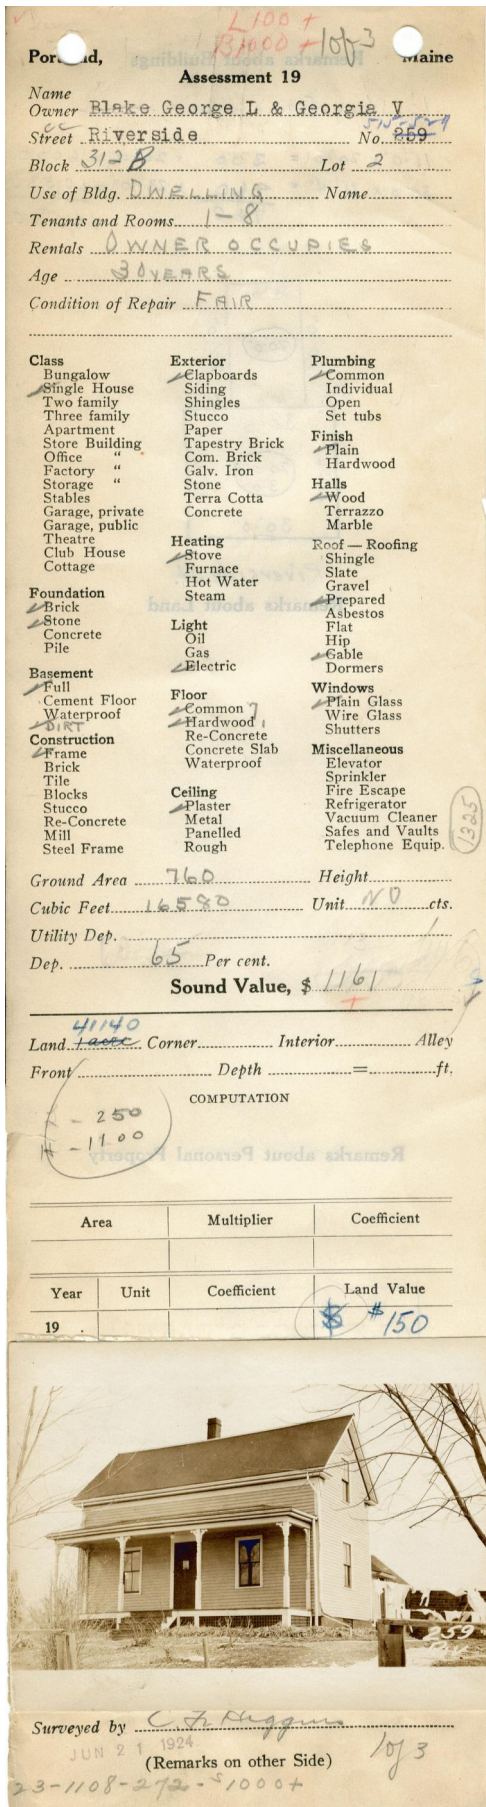 L 100 +
B 1000 + 1 of 3
Portland, Maine
Assessment 19
Name
Owner Blake George L & Georgia V
Street Riverside No. 259
515-529
Block 312B Lot 2
Use of Bldg. DWELLING Name
Tenants and Rooms 1-8
Rentals OWNER OCCUPIES
Age 30 YEARS
Condition of Repair FAIR
Class
Bungalow
Single House
Two family
Three family
Apartment
Store Building
Office "
Factory "
Storage "
Stables
Garage, private
Garage, public
Theatre
Club House
Cottage
Foundation
Brick
Stone
Concrete
Pile
Basement
Full
Cement Floor
Waterproof
DIRT
Construction
Frame
Brick
Tile
Blocks
Stucco
Re-Concrete
Mill
Steel Frame
Exterior
Clapboards
Siding
Shingles
Stucco
Paper
Tapestry Brick
Com. Brick
Galv. Iron
Stone
Terra Cotta
Concrete
Heating
Stove
Furnace
Hot Water
Steam
Light
Oil
Gas
Electric
Floor
Common 7
Hardwood 1
Re-Concrete
Concrete Slab
Waterproof
Ceiling
Plaster
Metal
Panelled
Rough
Plumbing
Common
Individual
Open
Set tubs
Finish
Plain
Hardwood
Halls
Wood
Terrazzo
Marble
Roof — Roofing
Shingle
Slate
Gravel
Prepared
Asbestos
Flat
Hip
Gable
Dormers
Windows
Plain Glass
Wire Glass
Shutters
Miscellaneous
Elevator
Sprinkler
Fire Escape
Refrigerator
Vacuum Cleaner
Safes and Vaults
Telephone Equip.
1325
Ground Area 760 Height
Cubic Feet 16580 Unit NO cts.
Utility Dep.
Dep. 65 Per cent.
Sound Value, $ 1161
+
41140
Land 1 acre Corner Interior Alley
Front Depth = ft.
COMPUTATION
- 250
- 1100
Area Multiplier Coefficient
Year Unit Coefficient Land Value
19 . $ $150
259
Surveyed by C. F. Higgins
JUN 21 1924
1 of 3
(Remarks on other Side)
23-1108-272-$1000+